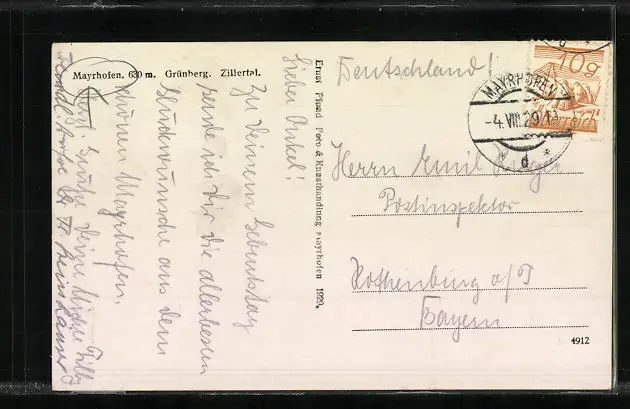 Mayrhofen, 630 m. Grünberg. Zillertal.
Lieber Onkel!
Zu Deinem Geburtstag
sende ich Dir die allerbesten
Glückwünsche aus dem
schönen Mayrhofen.
Deine Nichte Tilly
Ernst Pload Foto & Kunsthandlung Mayrhofen 1929.
Deutschland!
10g
MAYRHOFEN
-4.VIII.29
d
Herrn Emil
Postinspektor
Rothenburg o/T
Bayern
4912